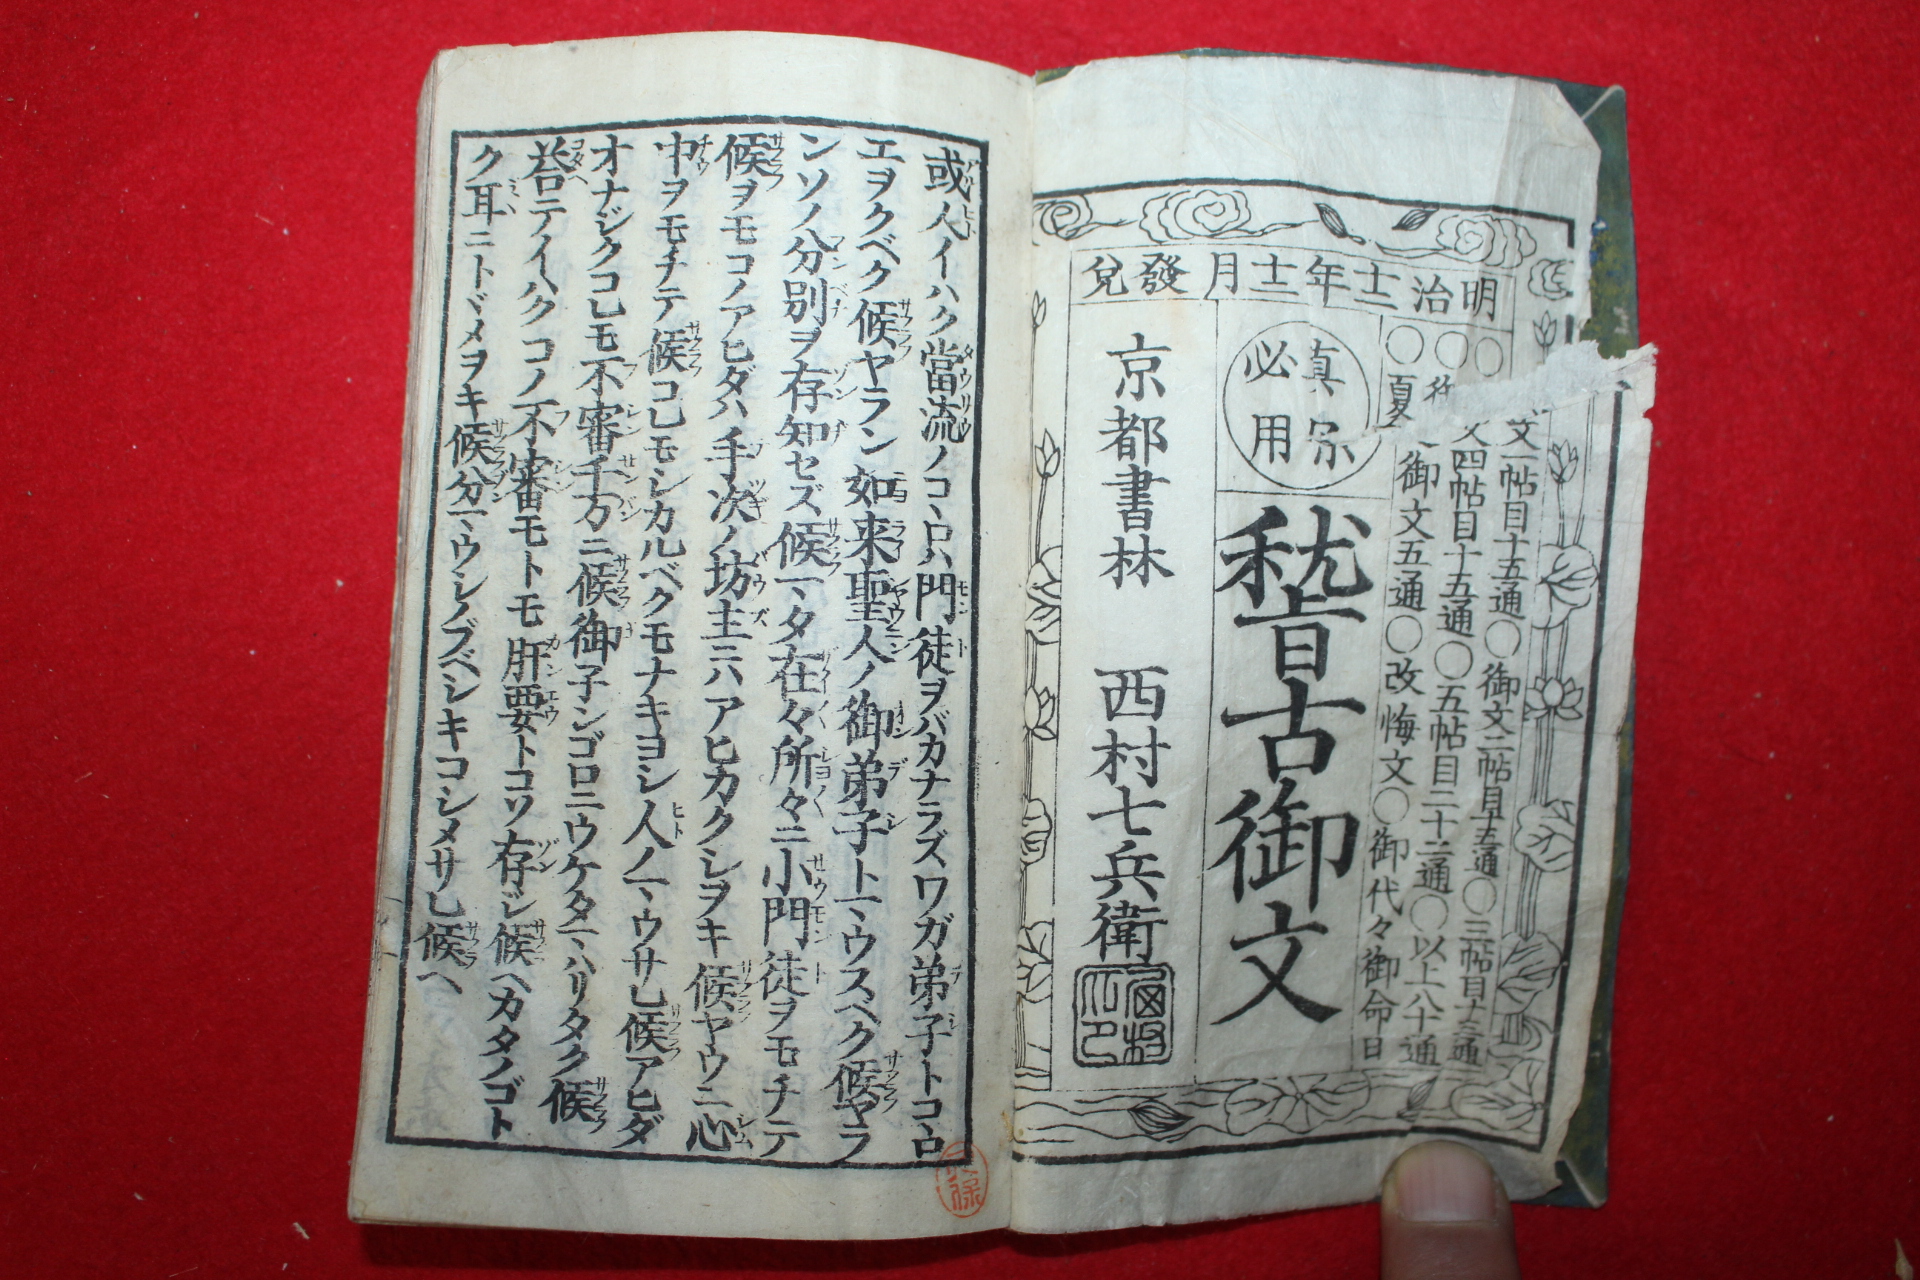 明治十一年十二月發兌
文一帖目十五通○御文二帖目十五通○三帖目十三通
文四帖目十五通○五帖目二十二通○以上八十通
○夏 御文五通○改悔文○御代々御命日
真宗
必用
稽古御文
京都書林 西村七兵衛
或人イハク當流ノコヽロハ門徒ヲバカナラズワガ弟子トコヽロ
エヲクベク候ヤラン如来聖人ノ御弟子トマウスベク候ヤラ
ンソノ分別ヲ存知セズ候マタ在々所々ニ小門徒ヲモチテ
候ヲモコノアヒダハ手次ノ坊主ニハアヒカクシヲキ候ヤウニ心
中ヲモチテ候コレモシカルベクモナキヨシ人ノマウサレ候アヒダ
オナジクコレモ不審千万ニ候御子ンゴロニウケタマハリタク候
荅テイハクコノ不審モトモ肝要トコソ存ジ候ヘカタノゴト
ク耳ニトヾメヲキ候分マウシノブベシキコシメサレ候ヘ